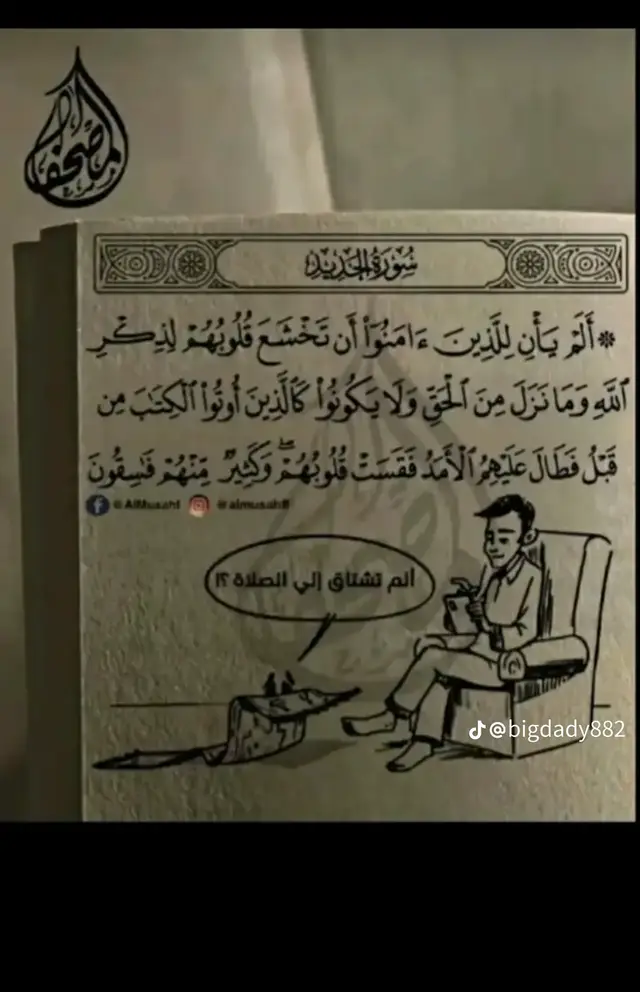 المصحف
سُورَةُ الحَدِيدِ
۞ أَلَمْ يَأْنِ لِلَّذِينَ ءَامَنُوٓا۟ أَن تَخْشَعَ قُلُوبُهُمْ لِذِكْرِ
ٱللَّهِ وَمَا نَزَلَ مِنَ ٱلْحَقِّ وَلَا يَكُونُوا۟ كَٱلَّذِينَ أُوتُوا۟ ٱلْكِتَٰبَ مِن
قَبْلُ فَطَالَ عَلَيْهِمُ ٱلْأَمَدُ فَقَسَتْ قُلُوبُهُمْ ۖ وَكَثِيرٌ مِّنْهُمْ فَٰسِقُونَ
@AlMusahf @almusahf
ألم تشتاق إلي الصلاة ؟!
@bigdady882